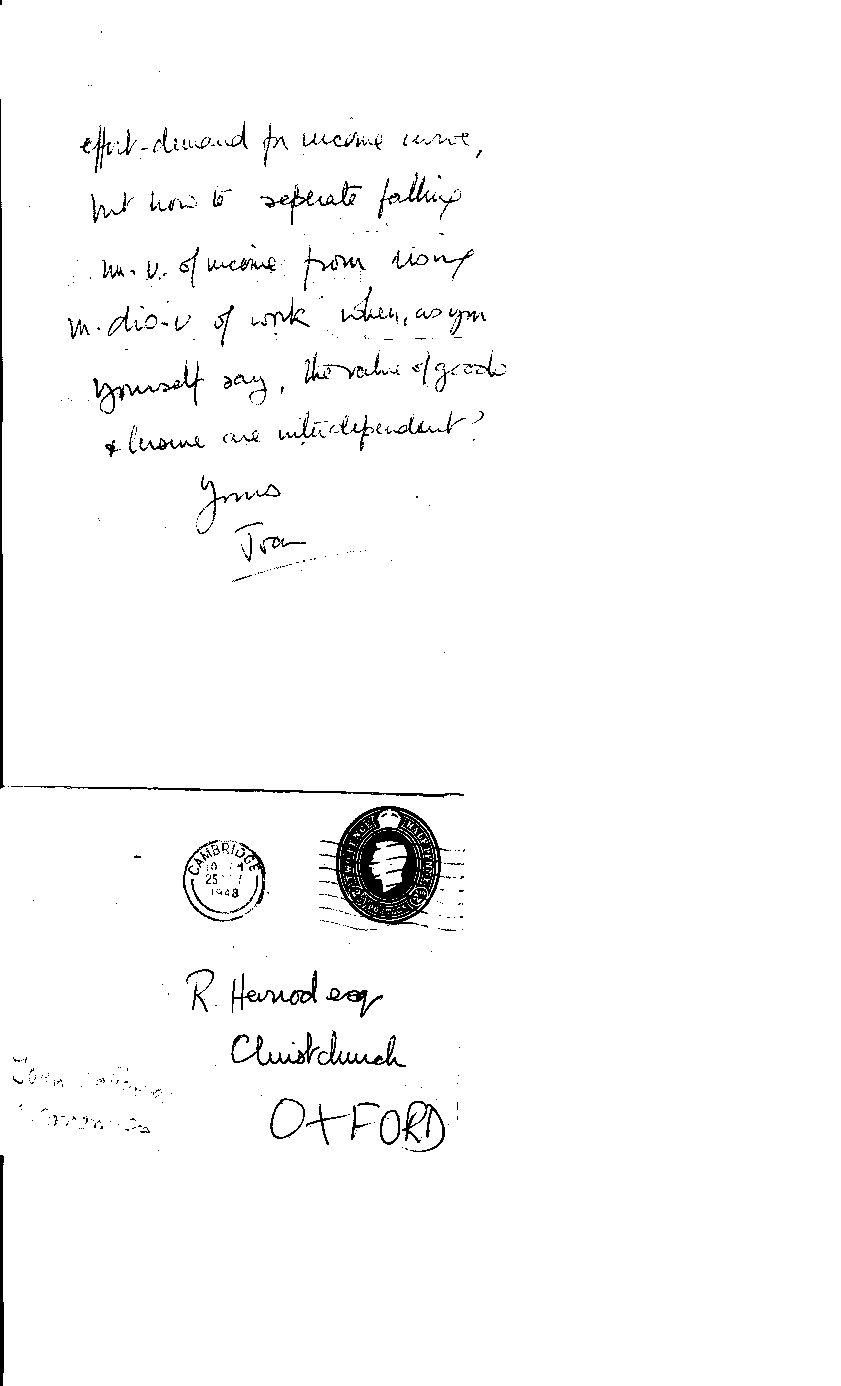 effort-demand for income curve,
but how to seperate falling
m. v. of income from rising
m. dis-v of work when, as you
yourself say, the value of goods
& leisure are interdependent?
Yours
Joan
CAMBRIDGE
25
1948
R. Harrod esq
Christchurch
OXFORD
Joan